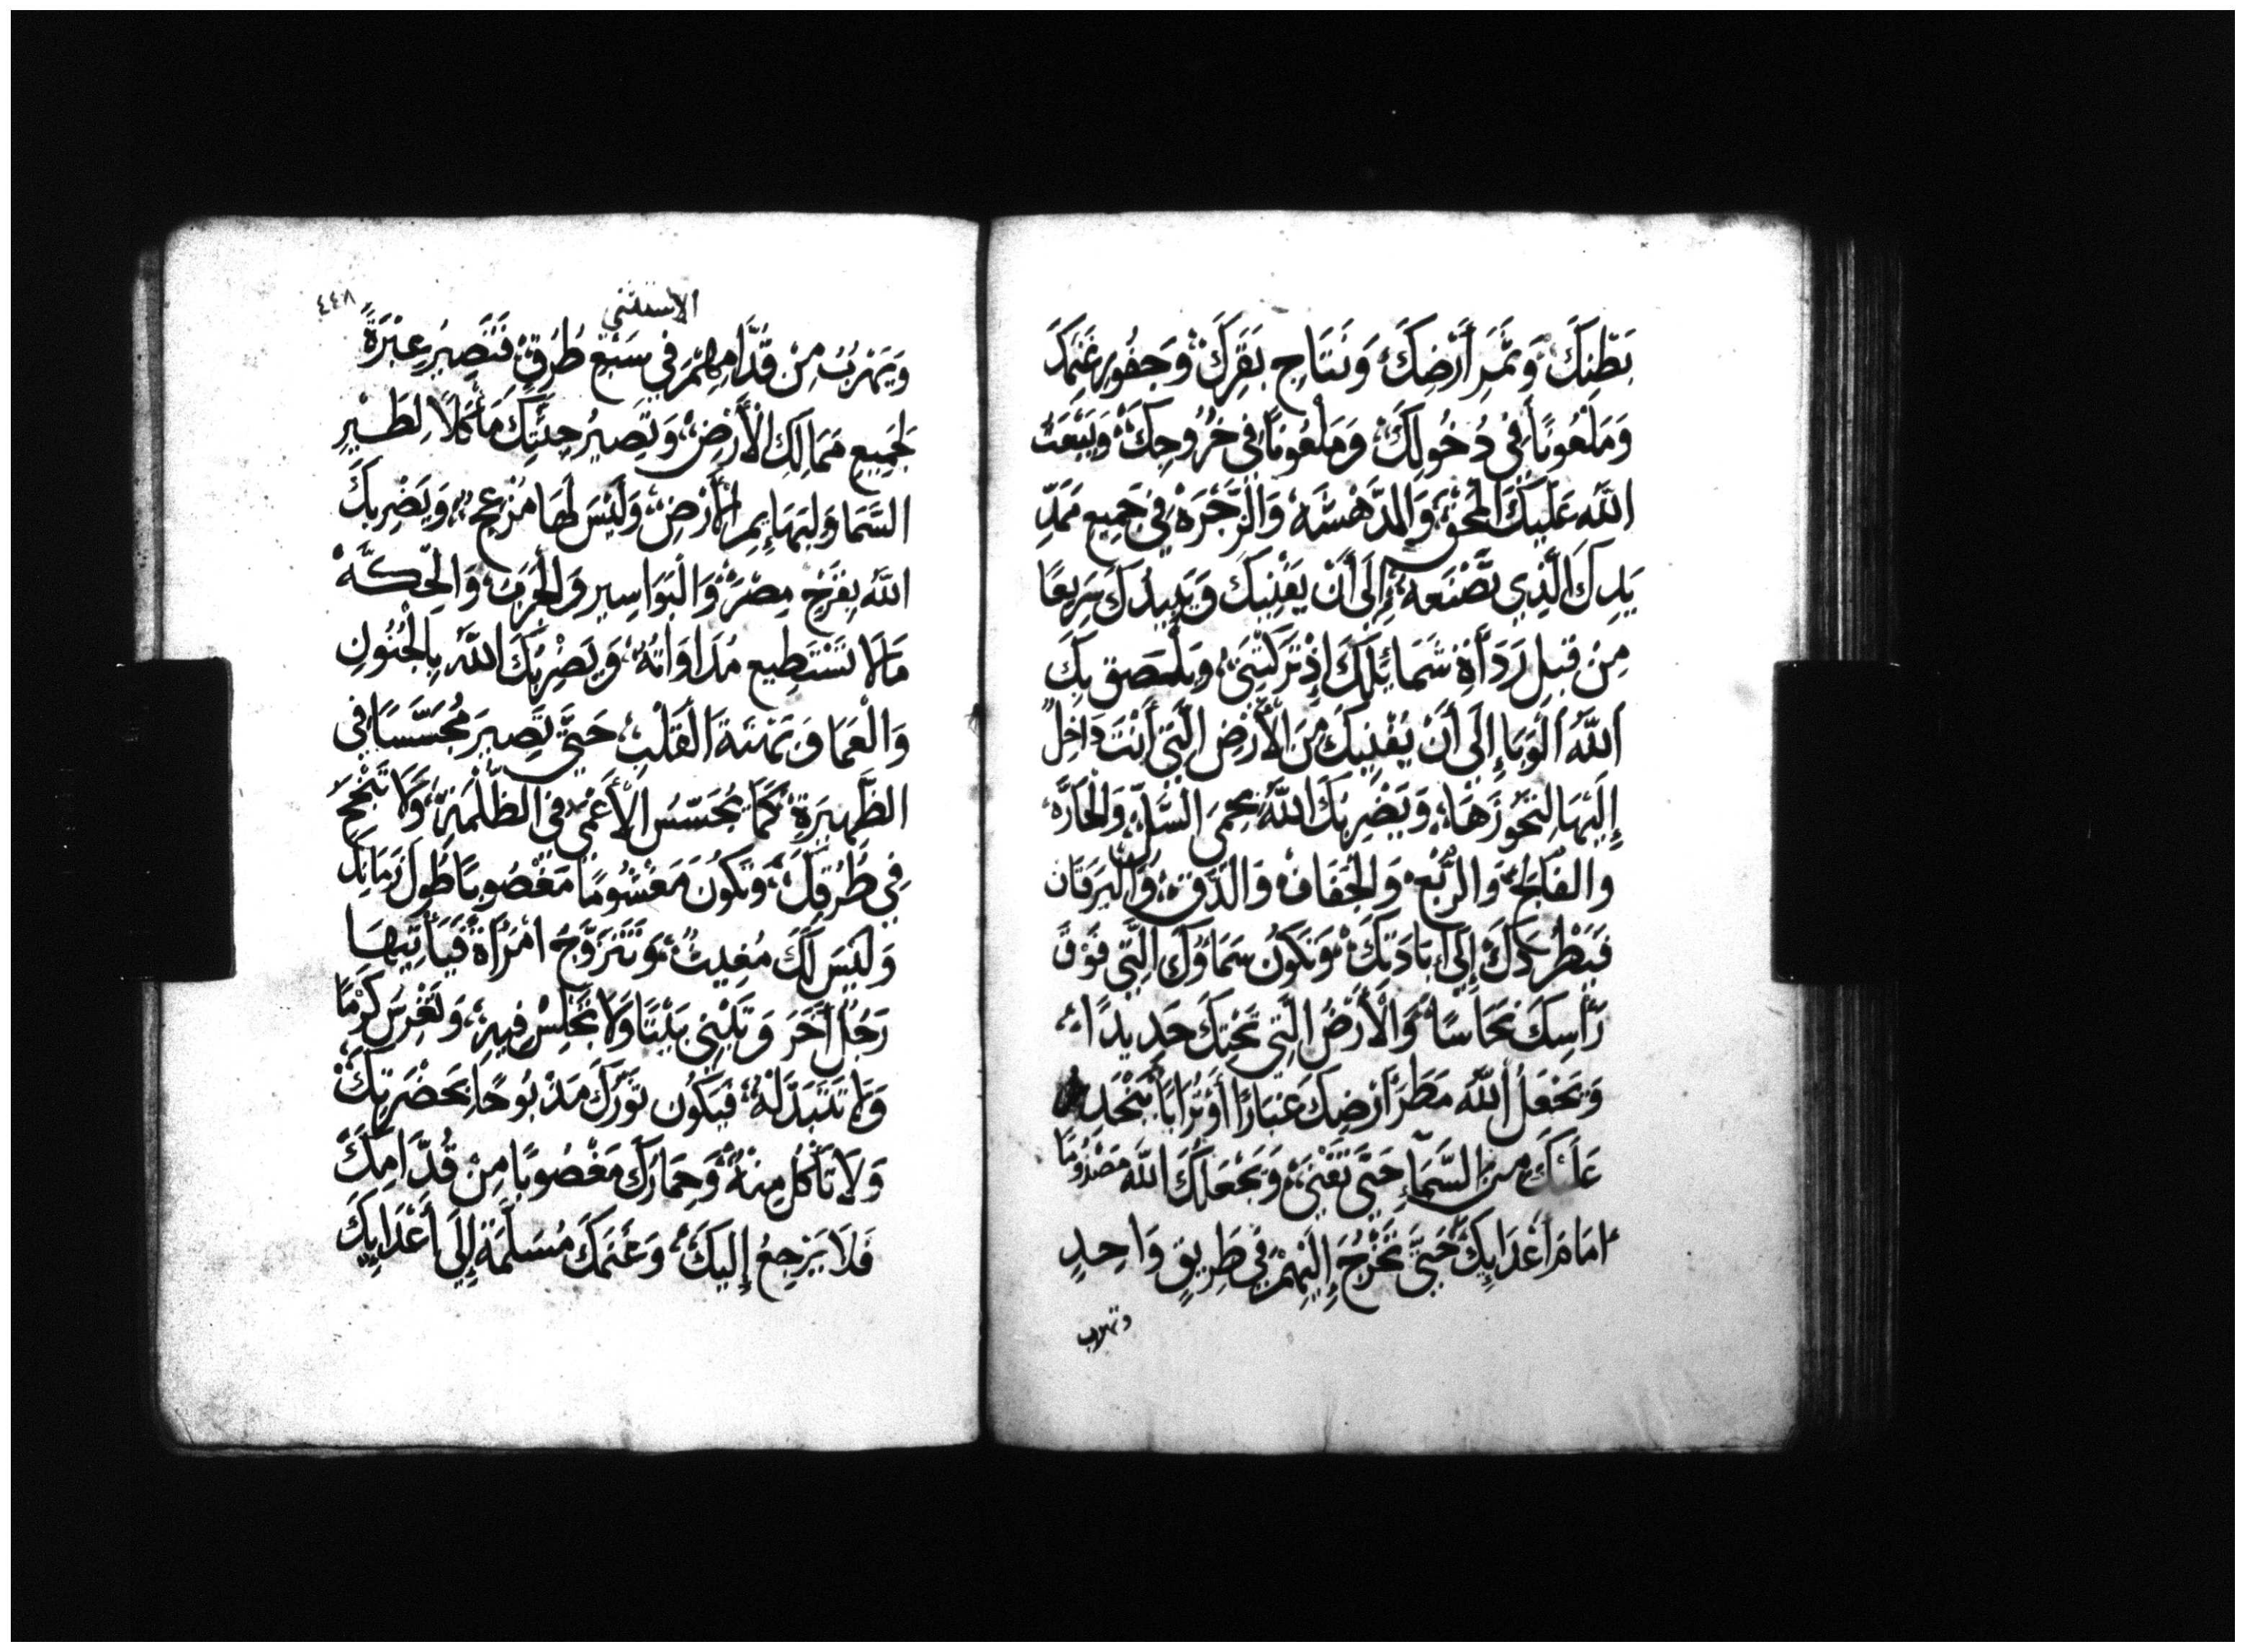 بَطْنِكَ وَثَمَرِ أَرْضِكَ وَنَتَاجِ بَقَرِكَ وَجَفُورِ غَنَمِكَ
وَمَلْعُونًا فِي دُخُولِكَ وَمَلْعُونًا فِي خُرُوجِكَ وَيَبْعَثُ
اللَّهُ عَلَيْكَ الْمَحْقَ وَالدَّهْشَه وَالزَّجْرَةَ فِي جَمِيعِ مَمَدِّ
يَدِكَ الَّذِي تَصْنَعه إِلَى أَنْ يَفْنِيكَ وَيَبِيدُكَ سَرِيعًا
مِنْ قِبَلِ رَدَاَةِ شَمَائِلِكَ إِذْ تَرَكْتَنِي وَيَلْصَق بِكَ
اَللَّهُ اَلْوَبَا إِلَى أَنْ يُفْنِيكَ مِنَ الْأَرْضِ الَّتِي أَنْتَ دَاخِلٌ
إِلَيْهَا لِتَحُوزَهَا وَيَضْرِبُكَ اللَّهُ بِحُمَى السِّلِّ وَالْحَارَّه
وَالفَلَج وَالرِّبْعِ وَالْجَفَافْ وَالدِّق وَالْيَرَقَان
فَيَطْرُدكَ إِلَى إِبَادَتِكَ وَتَكُونُ سَمَاوُكَ الَّتِي فَوْقَ
رَأْسِكَ نُحَاسًا وَالْأَرْضُ الَّتِي تَحْتِكَ حَدِيدًا
وَيَجْعَلُ اللَّهُ مَطَرَ أَرْضِكَ غُبَارًا أَوْ تُرَابًا يَنْحَدِرُ
عَلَيْكَ مِنَ السَّمَاءِ حَتَّى تَفْنَى وَيَجْعَلَكَ اللَّه مَصْدُومًا
امَامَ أَعْدَايِكَ حَتَّى تَخْرُجَ إِلَيْهِمْ فِي طَرِيقٍ وَاحِدٍ
وتهرب
الاستثنى
٤٤٨
وَيَهْرُبُ مِنْ قُدَّامِهِمْ فِي سَبْعِ طُرُقٍ فَتَصِيرُ عِبْرَةً
لِجَمِيعِ مَمَالِكَ الْأَرْضِ وَتَصِيرُ جِثَّتِكَ مَأْكَلًا لِطَيْرِ
السَّمَا وَلِبَهَايِمِ الْأَرْضِ وَلَيْسَ لَهَا مُزْعِج وَيَضْرِبكَ
اللَّهُ بِقَرْحِ مِصْرَ وَالْبَوَاسِيرِ وَالْجَرَبَ وَالْحِكَّهْ
مَالَا تَسْتَطِيع مُدَاوَاتَهُ وَيَضْرِبُكَ اللَّهُ بِالْجُنُونِ
وَالْعَمَا وَ الْقَلْبِ حَتَّى تَصِيرَ مُجَسِّسًا فِي
الظَّهِيرَةِ كَمَا يُجَسِّسُ الْأَعْمَى فِي الظُّلْمَةِ وَلَا تَنْجَحُ
فِي طُرُقِكَ وَتَكُونَ مَغْشُومًا مَغْصُوبًا طُولَ زَمَانِكَ
وَلَيْسَ لَكَ مُغِيثٌ وَتَتَزَوَّجُ امْرَأَةً فَيَأْتِيهَا
رَجُلٌ آخَرَ وَتَبْنِي بَيْتًا وَلَا تَجْلِسْ فِيهِ وَتَغْرِسَ كَرْمًا
وَلَا تَبْتَذِلَهُ فَيَكُون ثَوْرُكَ مَذْبُوحًا بِحَضْرَتِكَ
وَلَا تَأْكُل مِنْهُ وَحِمَارُكَ مَغْصُوبًا مِنْ قُدَّامِكَ
فَلَا يَرْجِعُ إِلَيْكَ وَغَنَمَكَ مُسَلَّمَةً إِلَى أَعْدَايِكَ